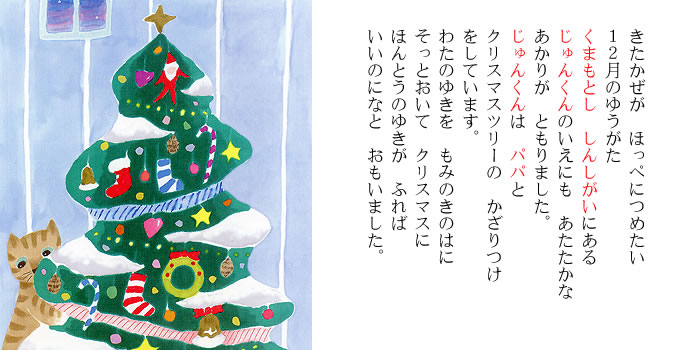 きたかぜが　ほっぺにつめたい
１２月のゆうがた
くまもとし　しんしがいにある
じゅんくんのいえにも　あたたかな
あかりが　ともりました。
じゅんくんは　パパと
クリスマスツリーの　かざりつけ
をしています。
わたのゆきを　もみのきのはに
そっとおいて　クリスマスに
ほんとうのゆきが　ふれば
いいのになと　おもいました。